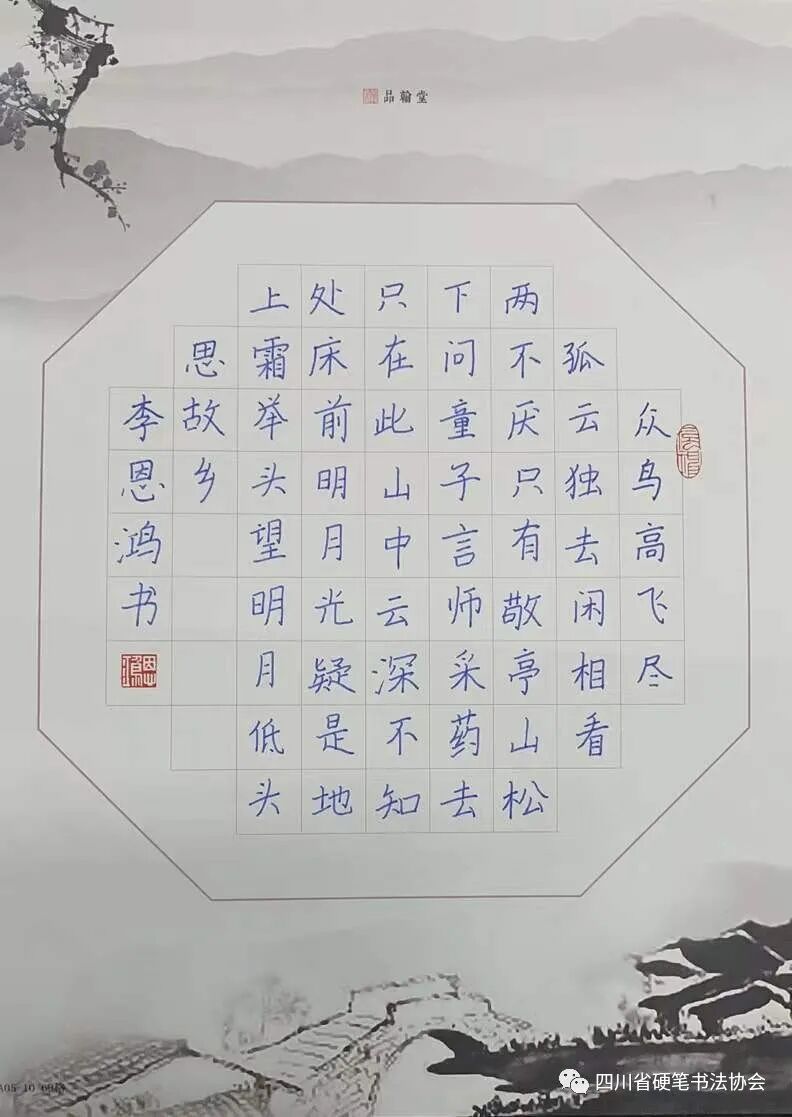 品翰堂
众鸟高飞尽
孤云独去闲相看
两不厌只有敬亭山松
下问童子言师采药去
只在此山中云深不知
处床前明月光疑是地
上霜举头望明月低头
思故乡
李恩鸿书
四川省硬笔书法协会